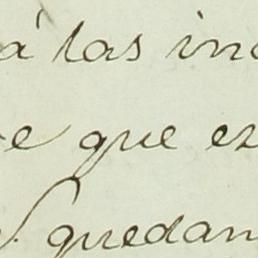 á las in
e que es
quedan